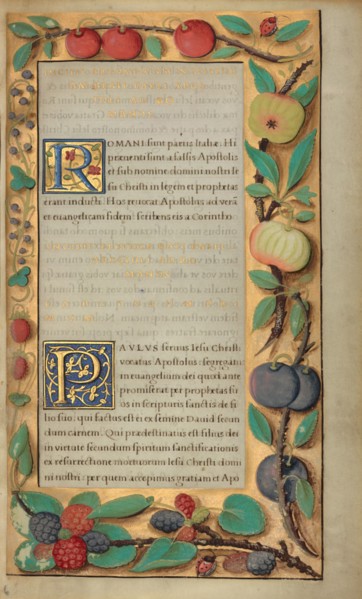 ROMANI sunt partis Italiæ. Hi
præuenti sunt a falsis Apostolis
et sub nomine domini nostri Ie
su Christi in legem et prophetas
erant inducti. Hos reuocat Apostolus ad veram
et euangelicam fidem, scribens eis a Corintho.
PAVLVS seruus Iesu Christi
vocatus Apostolus: segregatus
in euangelium dei quod ante
promiserat per prophetas su
os in scripturis sanctis de fi
lio suo: qui factus est ei ex semine Dauid secun
dum carnem. Qui prædestinatus est filius dei
in virtute secundum spiritum sanctificationis
ex resurrectione mortuorum Iesu Christi domi
ni nostri: per quem accepimus gratiam et Apo